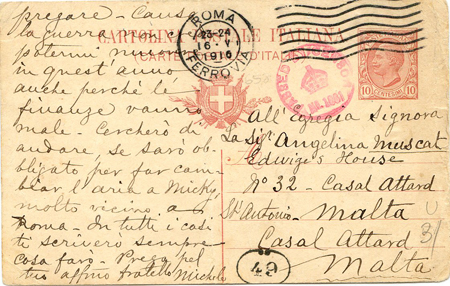 pregare - Causa
la guerra
potermi muov
in quest'anno
anche perché le
finanze vanno
male. Cercherò di
andare, se sarò ob-
bligato per far cam-
biar l'aria a Mich,
molto vicino a
Roma. In tutti i casi
ti scriverò sempre
cosa farò. Prega pel
tuo affmo fratello Michele
CARTOLINA ALE ITALIANA
(CARTE D'ITALIE)
ROMA
23-24
16 · V
1916
FERROVIA
10 CENTESIMI 10
All'Egregia Signora
La Sigra Angelina Muscat
Edwige's House
No 32 - Casal Attard
St Antonio - Malta
Casal Attard
Malta
49